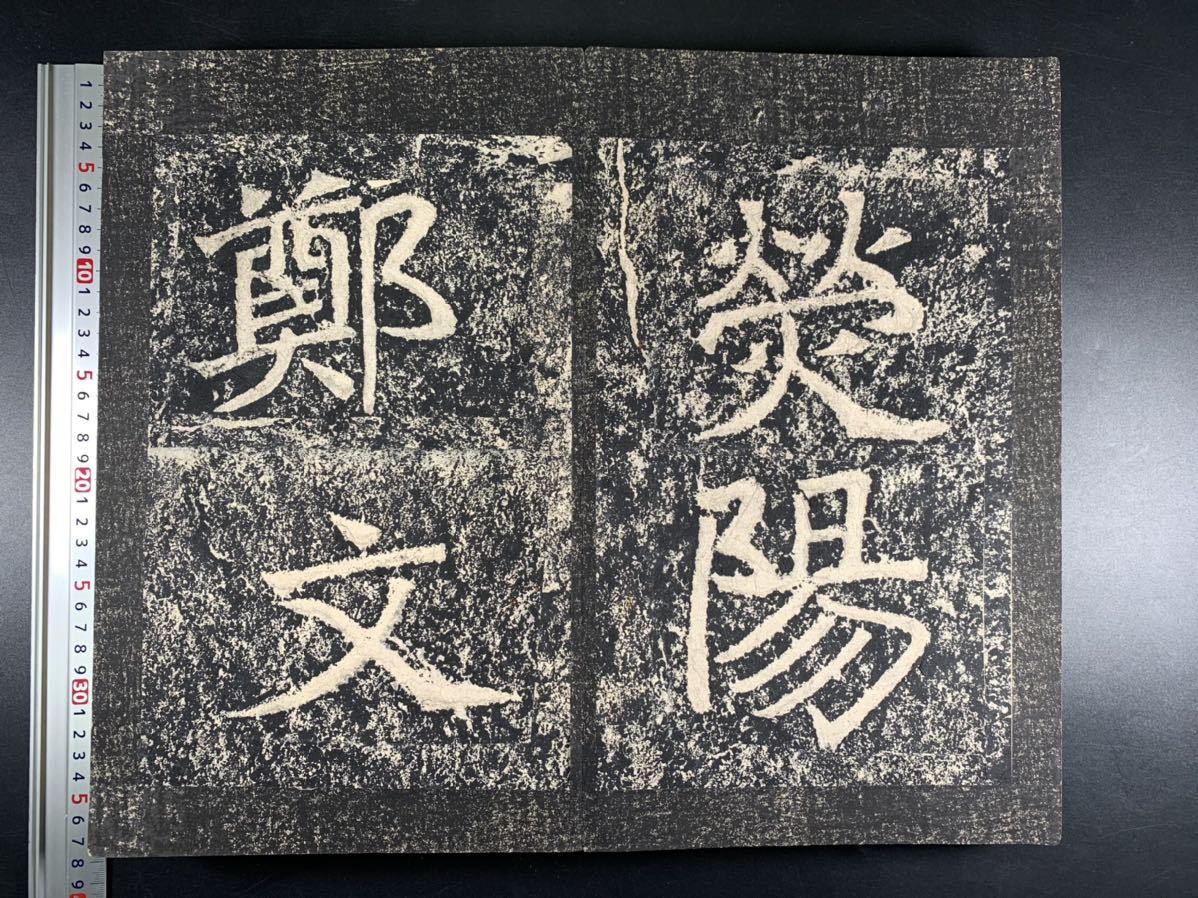 熒陽
鄭文
1 2 3 4 5 6 7 8 9 10 1 2 3 4 5 6 7 8 9 20 1 2 3 4 5 6 7 8 9 30 1 2 3 4 5 6 7 8 9